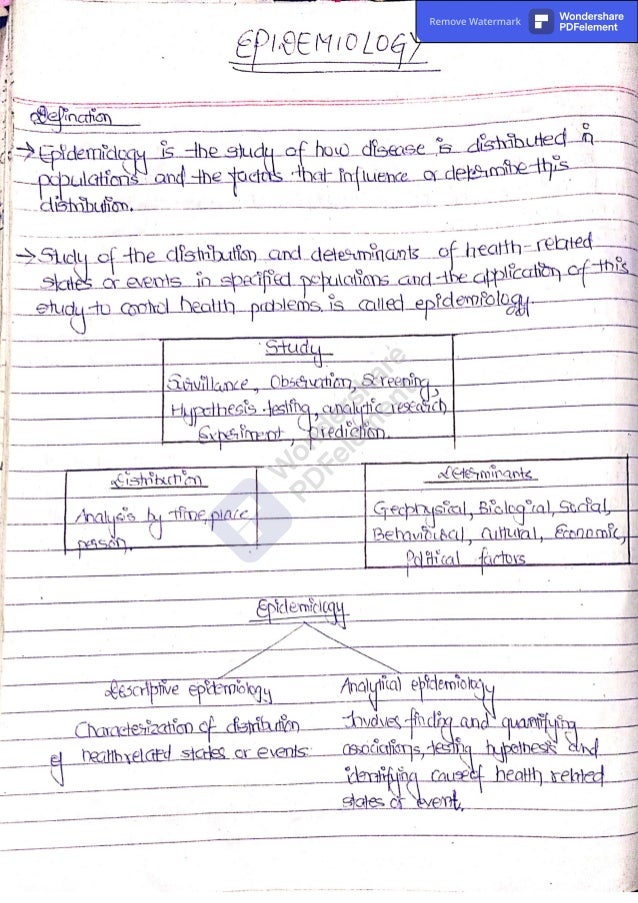 Remove Watermark
Wondershare
PDFelement
EPIDEMIOLOGY
Defination
→ Epidemiology is the study of how disease is distributed in
populations and the factors that influence or determine this
distribution.
→ Study of the distribution and determinants of health-related
states or events in specified populations and the application of this
study to control health problems is called epidemiology.
Study
Survillance, Observation, Screening,
Hypothesis testing, analytic research
Experiment, prediction.
Distribution
Analysis by time, place
person.
Determinants
Geophysical, Biological, Social,
Behavioural, cultural, Economic,
Political factors
Wondershare
PDFelement
Epidemiology
Descriptive epidemiology
Characterization of distribution
of health related states or events.
Analytical epidemiology
Involves finding and quantifying
associations, testing hypothesis and
identifying cause of health related
states or event.